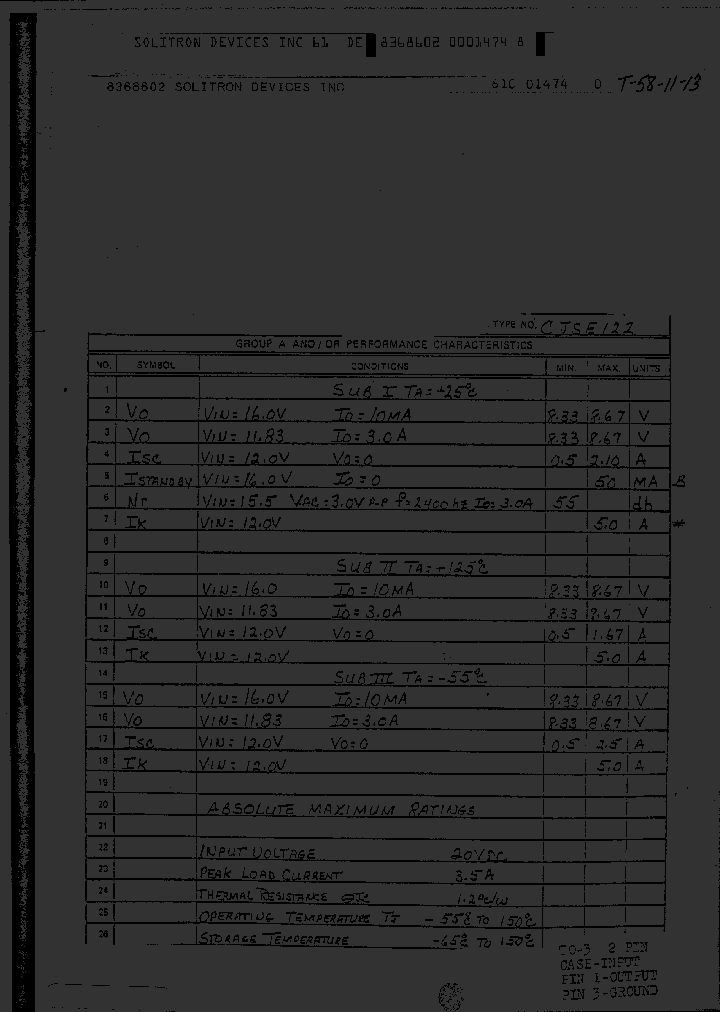 SOLITRON DEVICES INC 61 DE 8368602 0001474 8
8368602 SOLITRON DEVICES INC 61C 01474 D T-58-11-13
TYPE NO. CJSE122
GROUP A AND/OR PERFORMANCE CHARACTERISTICS
NO. SYMBOL CONDITIONS MIN. MAX. UNITS
1 SUB I TA=+25°C
2 VO VIN=16.0V IO=10MA 8.33 8.67 V
3 VO VIN=11.83 IO=3.0A 8.33 8.67 V
4 ISC VIN=12.0V VO=0 0.5 2.10 A
5 ISTANDBY VIN=16.0V IO=0 50 MA B
6 Nr VIN=15.5 VAC=3.0V P-P f=2400hz IO=3.0A 55 db
7 IK VIN=12.0V 5.0 A #
8
9 SUB II TA=+125°C
10 VO VIN=16.0 IO=10MA 8.33 8.67 V
11 VO VIN=11.83 IO=3.0A 8.33 8.67 V
12 ISC VIN=12.0V VO=0 0.5 1.67 A
13 IK VIN=12.0V 5.0 A
14 SUB III TA=-55°C
15 VO VIN=16.0V IO=10MA 8.33 8.67 V
16 VO VIN=11.83 IO=3.0A 8.33 8.67 V
17 ISC VIN=12.0V VO=0 0.5 2.5 A
18 IK VIN=12.0V 5.0 A
19
20 ABSOLUTE MAXIMUM RATINGS
21
22 INPUT VOLTAGE 20VDC
23 PEAK LOAD CURRENT 3.5A
24 THERMAL RESISTANCE θJC 1.2°C/W
25 OPERATING TEMPERATURE TJ -55°C TO 150°C
26 STORAGE TEMPERATURE -65°C TO 150°C
TO-3 2 PIN
CASE-INPUT
PIN 1-OUTPUT
PIN 3-GROUND